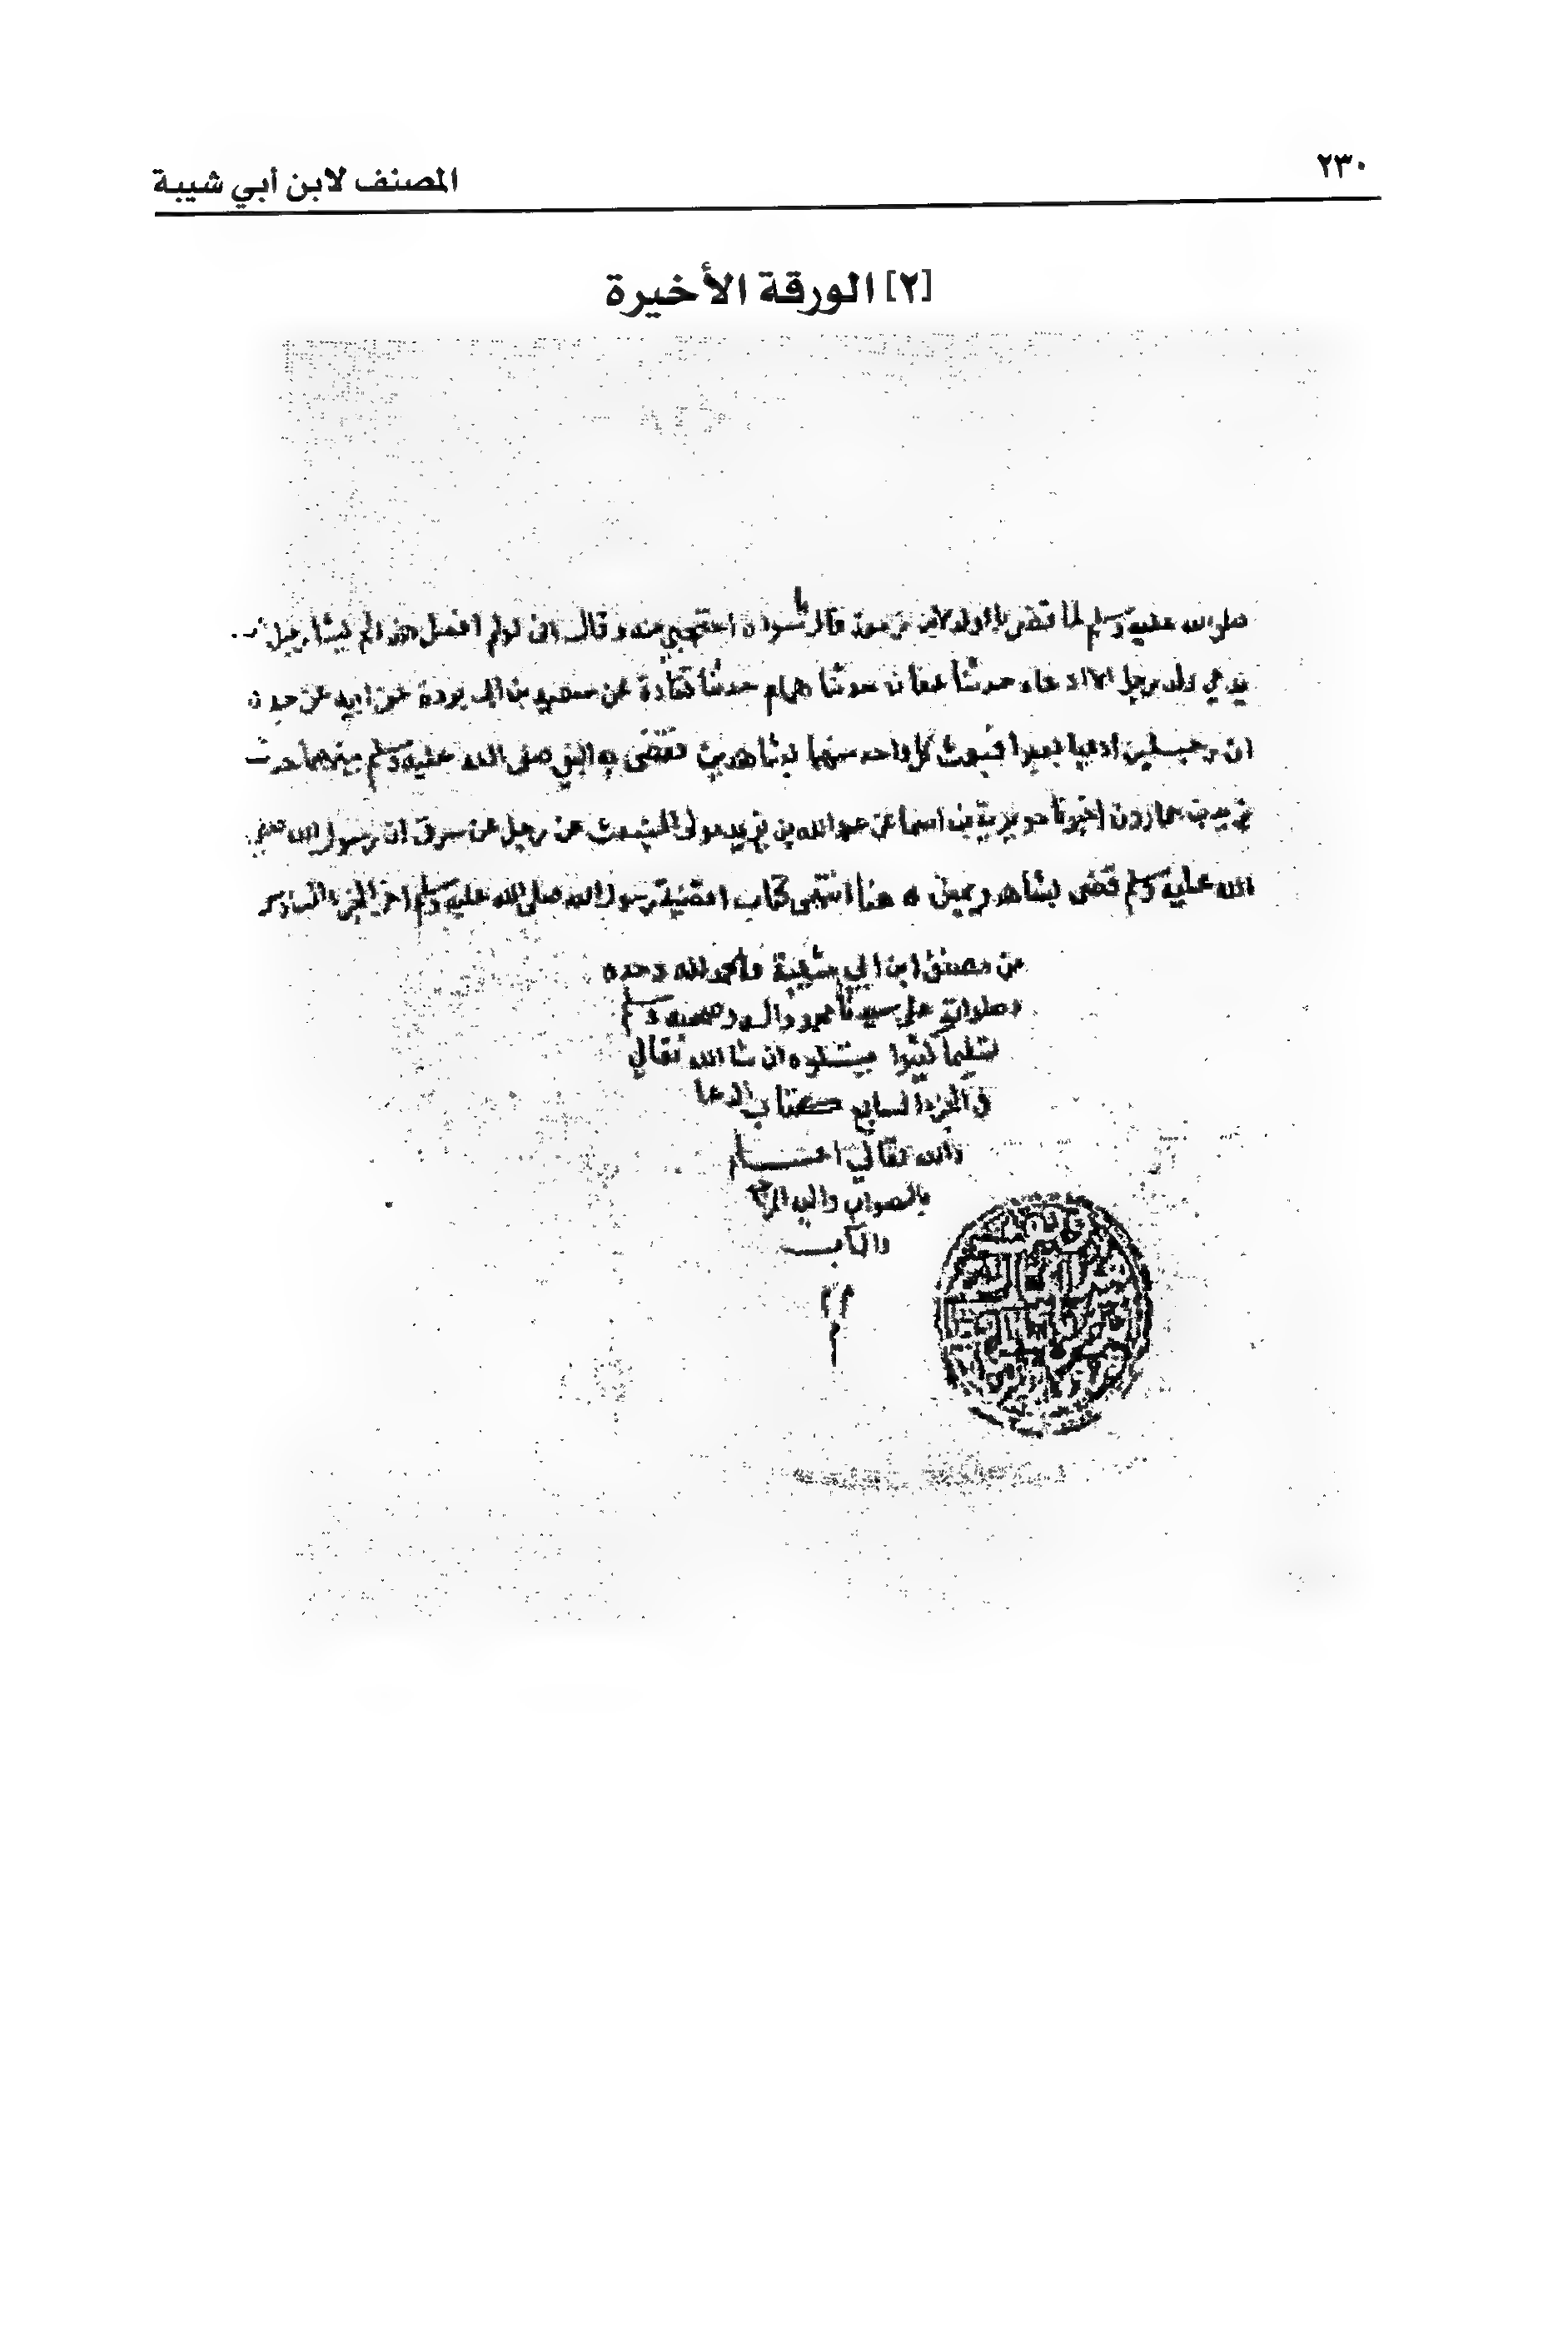 ٢٣٠
المصنف لابن أبي شيبة
[٢] الورقة الأخيرة
صلى الله عليه وسلم لما قضى بالولد لابن زمعة قال لسودة احتجبي منه وقال ان لولم افعل هذا لم يشأ رجل
يدعي ولد رجل الا ادعاه حدثنا عفان حدثنا همام حدثنا قتادة عن سعيد بن ابي بردة عن ابيه عن جده
ان رجلين ادعيا بعيرا فبعث كل واحد منهما بشاهدين فقضى به النبي صلى الله عليه وسلم بينهما حدثـ
يزيد بن هارون اخبرنا جويرية بن اسما عن عبد الله بن يزيد مولى المنبعث عن رجل عن سرق ان رسول الله صلى
الله عليه وسلم قضى بشاهد ويمين ه هنا انتهى كتاب اقضية رسول الله صلى الله عليه وسلم اخر الجزء السادس
من مصنف ابن ابي شيبة والحمد لله وحده
وصلواته على سيدنا محمد واله وصحبه وسلم
تسليما كثيرا يتلوه ان شا الله تعالى
في الجزء السابع كتاب الدعا
والله تعالى اعلم
بالصواب واليه المرجع
والمآب